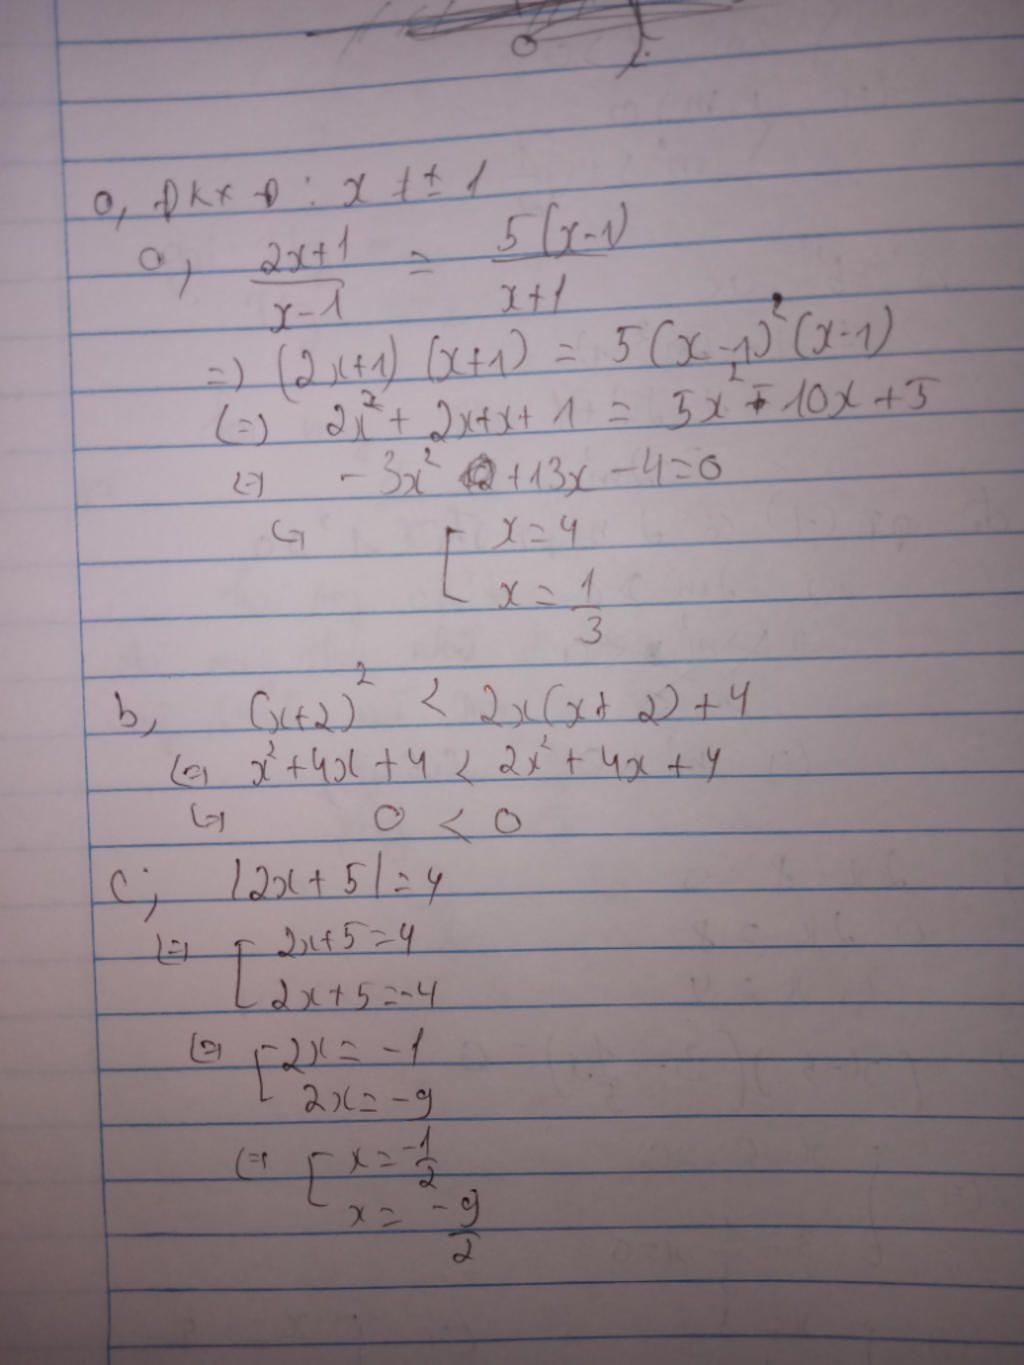 a, ĐKXĐ : x ≠ ± 1
a, \frac{2x+1}{x-1} = \frac{5(x-1)}{x+1}
=> (2x+1) (x+1) = 5(x-1)² (x-1)
<=> 2x² + 2x+x+1 = 5x² - 10x + 5
<=> -3x² +13x -4=0
<=> [ x=4
x = \frac{1}{3}
b, (x+2)² < 2x(x+2)+4
<=> x²+4x+4 < 2x²+4x+4
<=> 0 < 0
c, |2x+5|=4
<=> [ 2x+5=4
2x+5=-4
<=> [ 2x = -1
2x = -9
<=> [ x = \frac{-1}{2}
x = \frac{-9}{2}